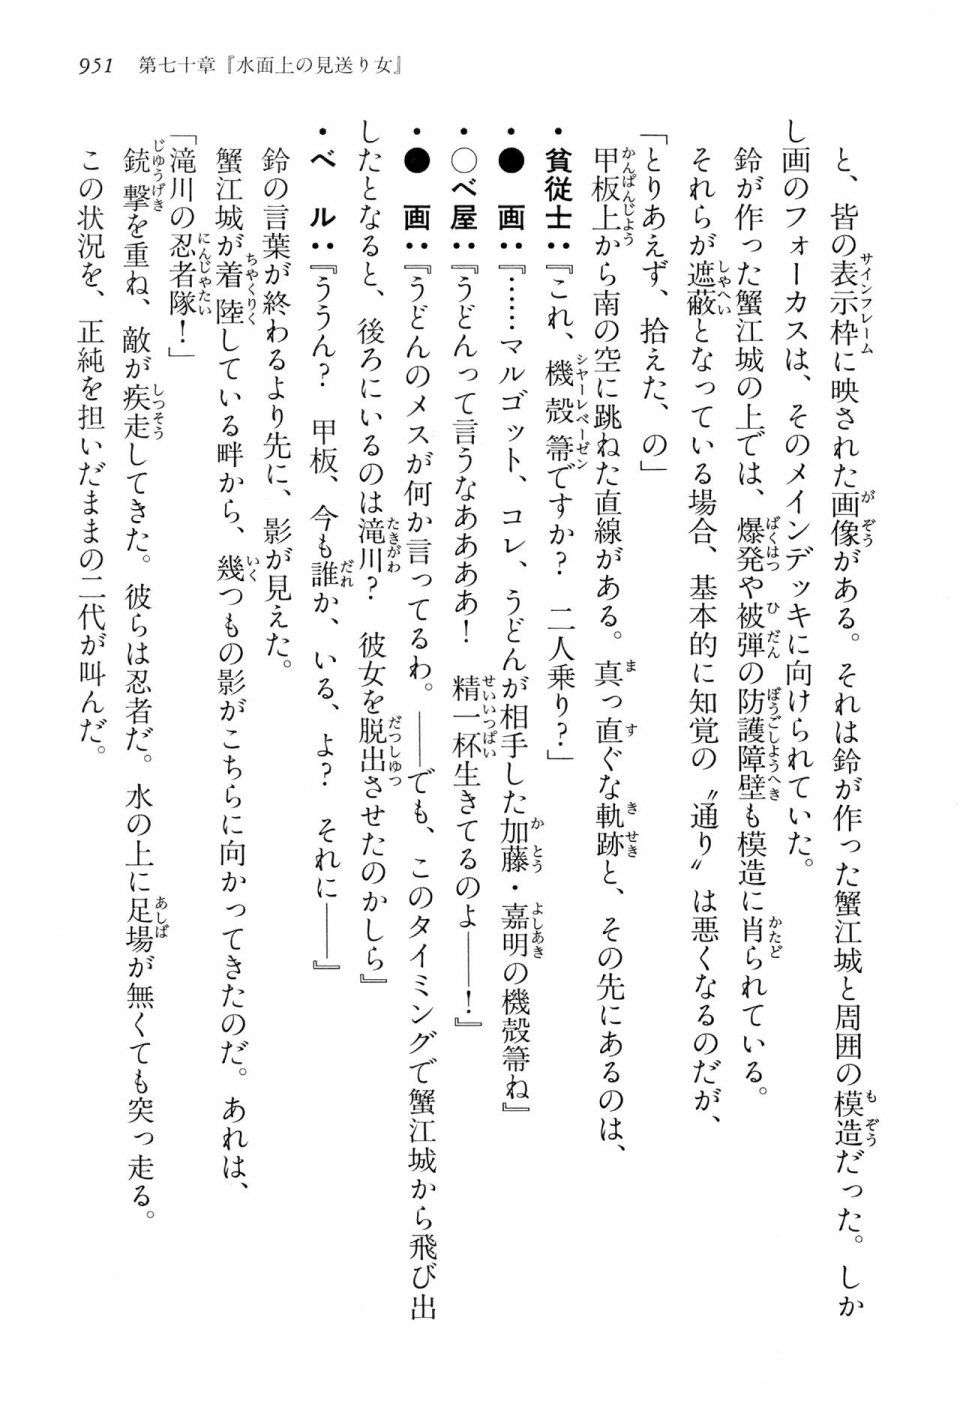 951　第七十章『水面上の見送り女』
　と、皆の表示枠に映された画像がある。それは鈴が作った蟹江城と周囲の模造だった。しか
し画のフォーカスは、そのメインデッキに向けられていた。
　鈴が作った蟹江城の上では、爆発や被弾の防護障壁も模造に肖られている。
　それらが遮蔽となっている場合、基本的に知覚の〝通り〟は悪くなるのだが、
「とりあえず、拾えた、の」
　甲板上から南の空に跳ねた直線がある。真っ直ぐな軌跡と、その先にあるのは、
・貧従士：『これ、機殻箒ですか？　二人乗り？』
・●　画：『……マルゴット、コレ、うどんが相手した加藤・嘉明の機殻箒ね』
・○べ屋：『うどんって言うなああああ！　精一杯生きてるのよ――！』
・●　画：『うどんのメスが何か言ってるわ。――でも、このタイミングで蟹江城から飛び出
したとなると、後ろにいるのは滝川？　彼女を脱出させたのかしら』
・ベ　ル：『ううん？　甲板、今も誰か、いる、よ？　それに――』
　鈴の言葉が終わるより先に、影が見えた。
　蟹江城が着陸している畔から、幾つもの影がこちらに向かってきたのだ。あれは、
「滝川の忍者隊！」
　銃撃を重ね、敵が疾走してきた。彼らは忍者だ。水の上に足場が無くても突っ走る。
　この状況を、正純を担いだままの二代が叫んだ。